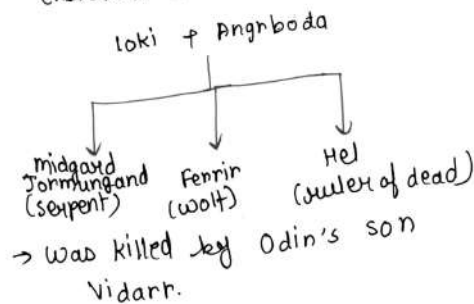 loki + Angrboda
midgard Jormungand (serpent)
Fenrir (wolf)
Hel (ruler of dead)
→ was killed by Odin's son
Vidarr.